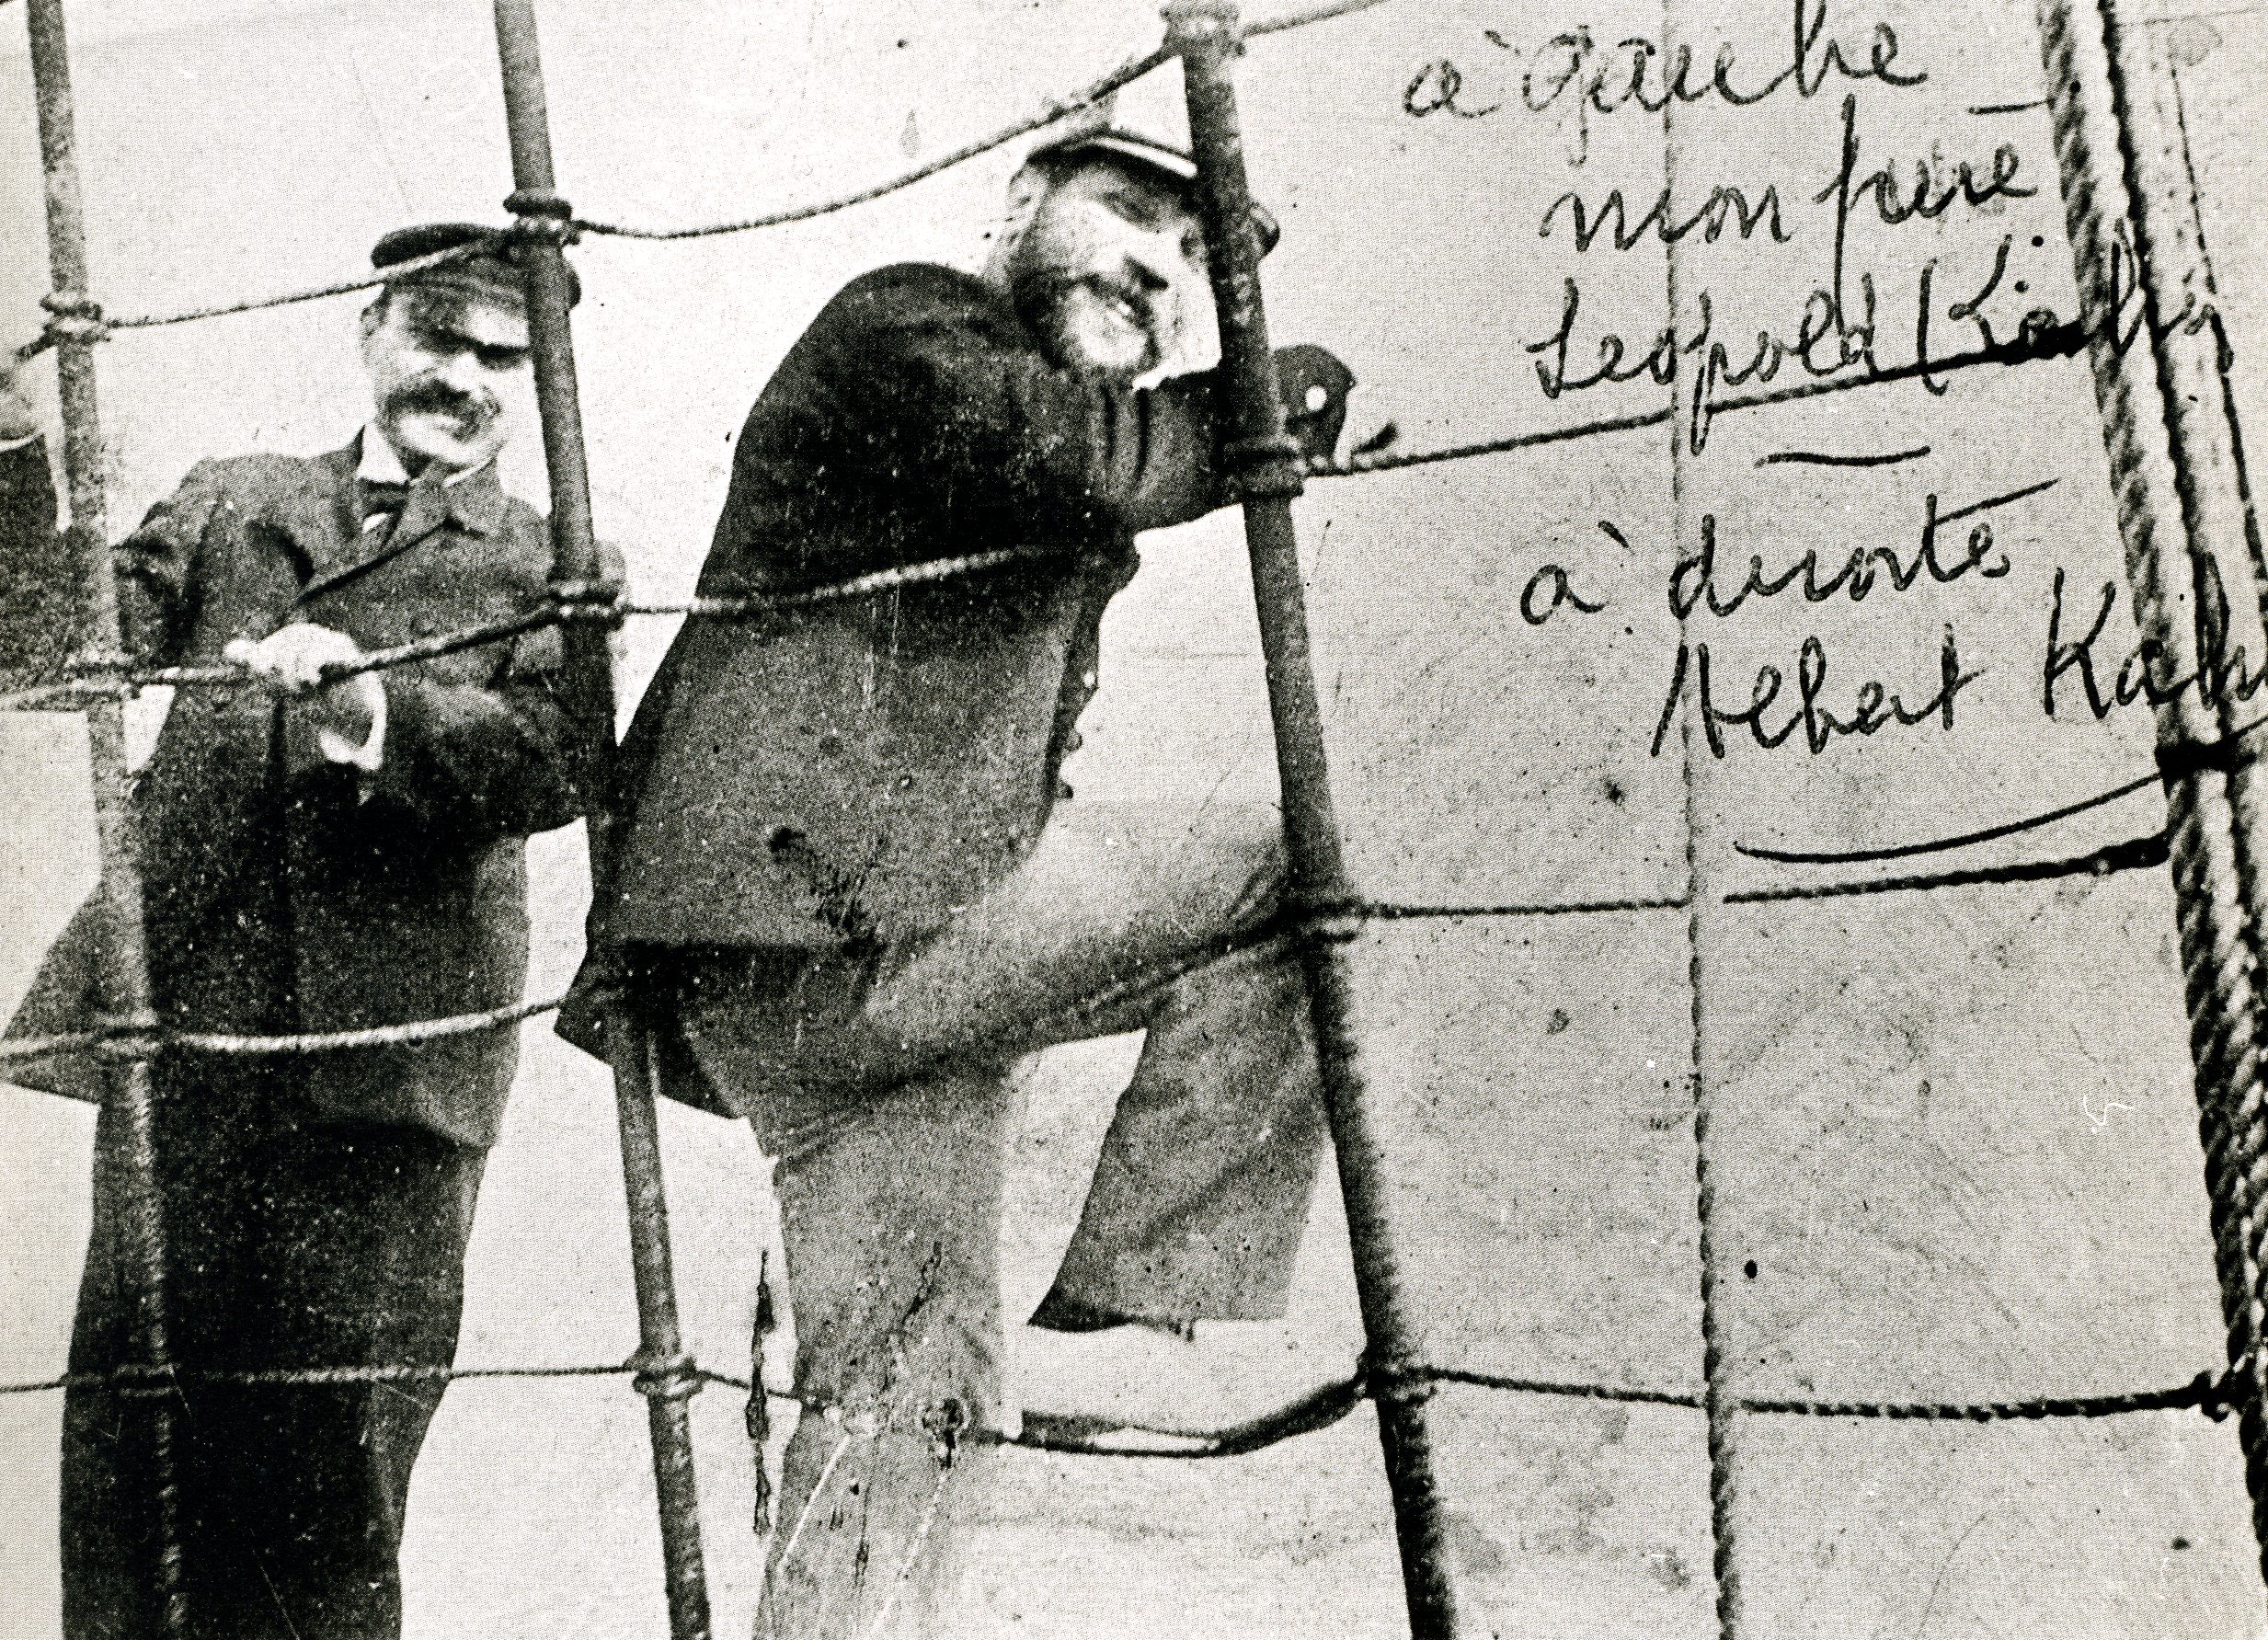 à gauche
mon père
Leopold Kahn
à droite
Albert Kahn